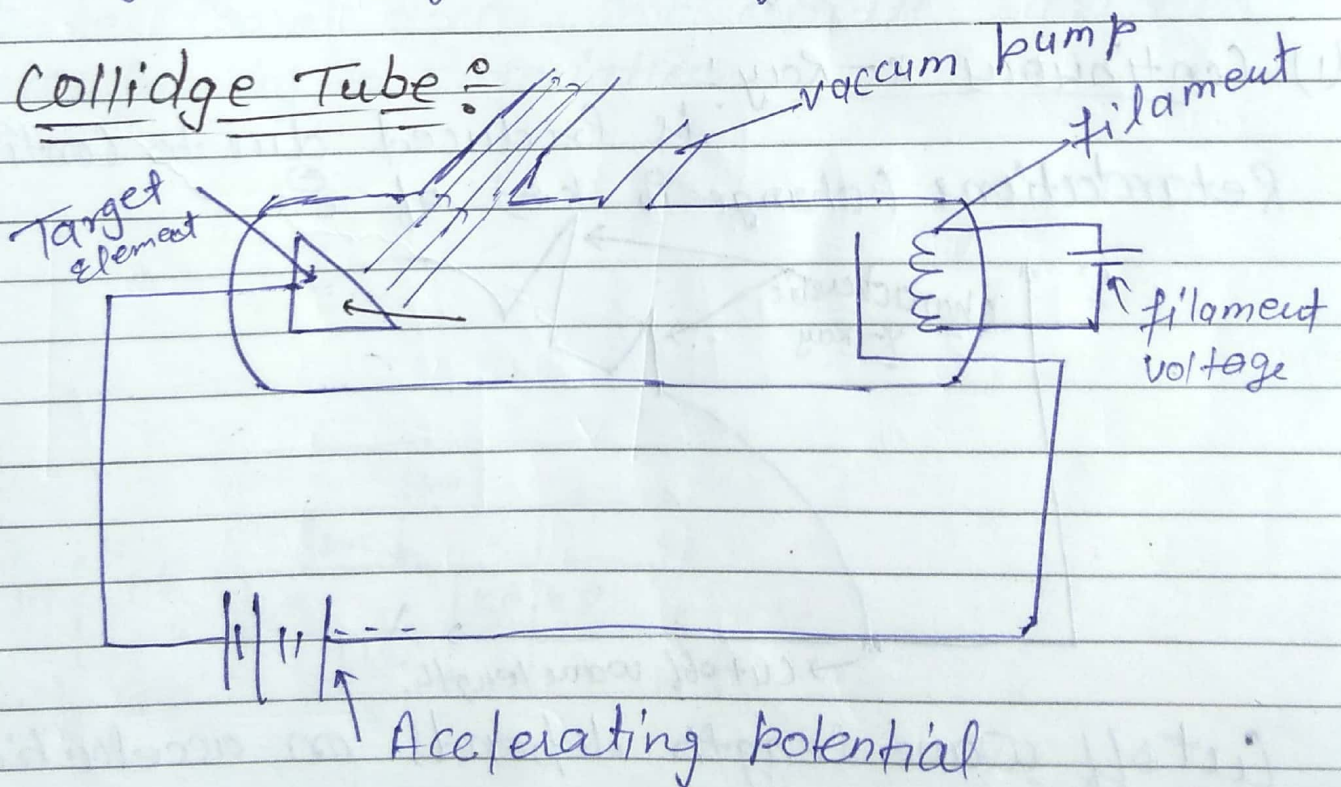 Collidge Tube :
vaccum pump
filament
Target
Element
filament
voltage
Acelerating potential